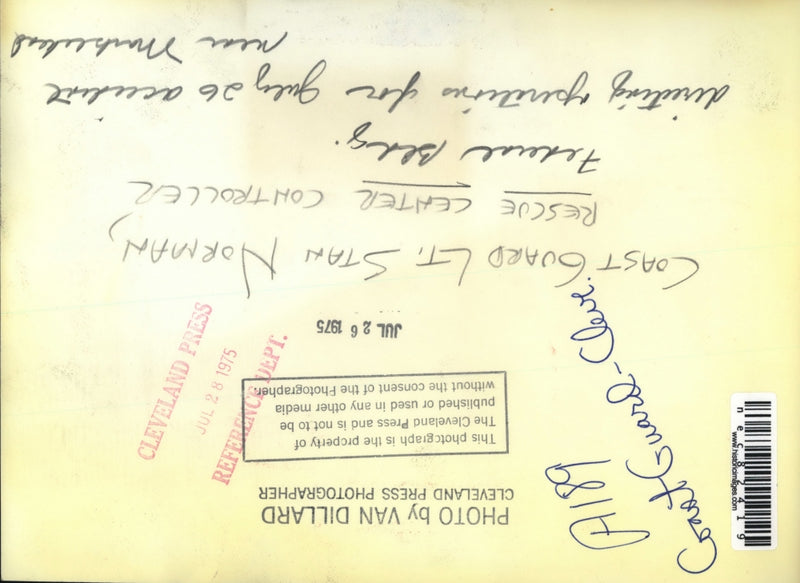 PHOTO by VAN DILLARD
CLEVELAND PRESS PHOTOGRAPHER
This photograph is the property of
The Cleveland Press and is not to be
published or used in any other media
without the consent of the Photographer.
JUL 26 1975
COAST GUARD LT. STAN NORMAN,
RESCUE CENTER CONTROLLER
Federal Bldg.
directing operations for July 26 accident
near
CLEVELAND PRESS
JUL 28 1975
REFERENCE DEPT.
A189
Coast Guard - Cleve.
www.historicimages.com
nec82419